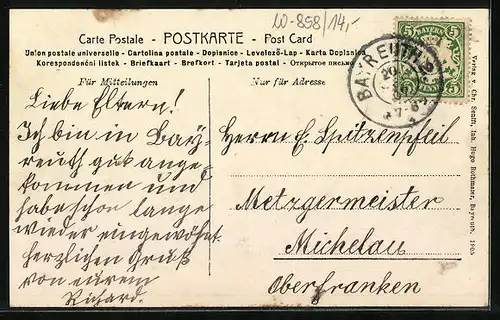 W-858/14,-
Carte Postale - POSTKARTE - Post Card
Union postale universelle - Cartolina postale - Dopisnice - Levelező-Lap - Karta Dopisnica
Korespondenční lístek - Briefkaart - Brefkort - Tarjeta postal - Открытое письмо
Für Mitteilungen
Nur für Adresse
BAYERN
5 5
PFENNIG
BAYREUTH 2
20
Liebe Eltern!
Ich bin in Bay-
reuth gut ange-
kommen und
habe schon lange
wieder eingewöhnt.
herzlichen Gruß
von eurem
Richard.
Herrn E. Spitzenpfeil
Metzgermeister
Michelau
Oberfranken
Verlag v. Chr. Senfft, Inh. Hugo Rothmaier, Bayreuth. 1905